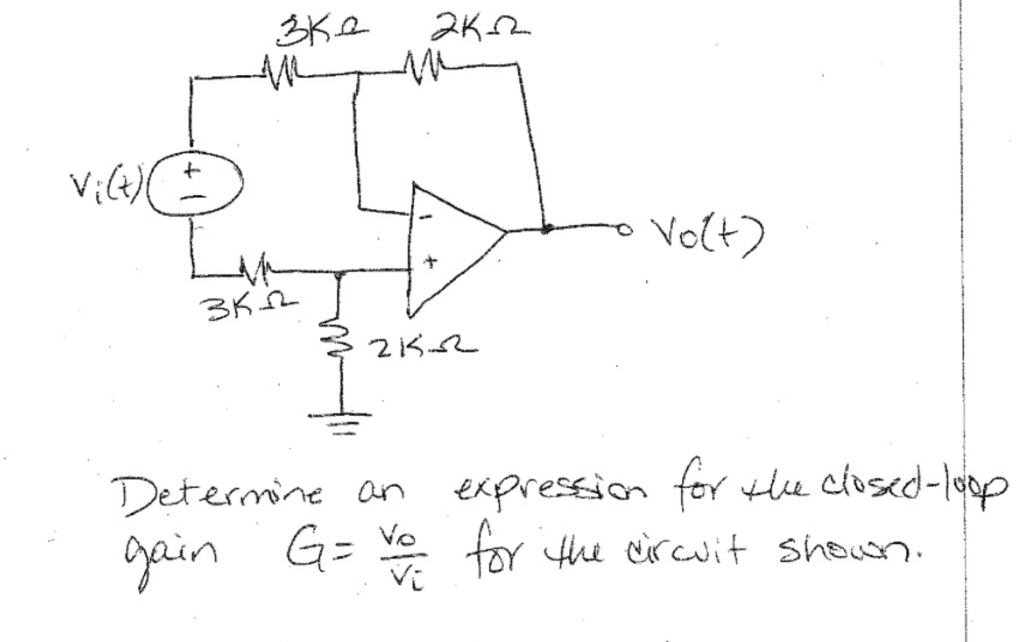 3KΩ 2KΩ
Vi(t) + -
- +
Vo(t)
3KΩ
2KΩ
Determine an expression for the closed-loop
gain G = Vo/Vi for the circuit shown.